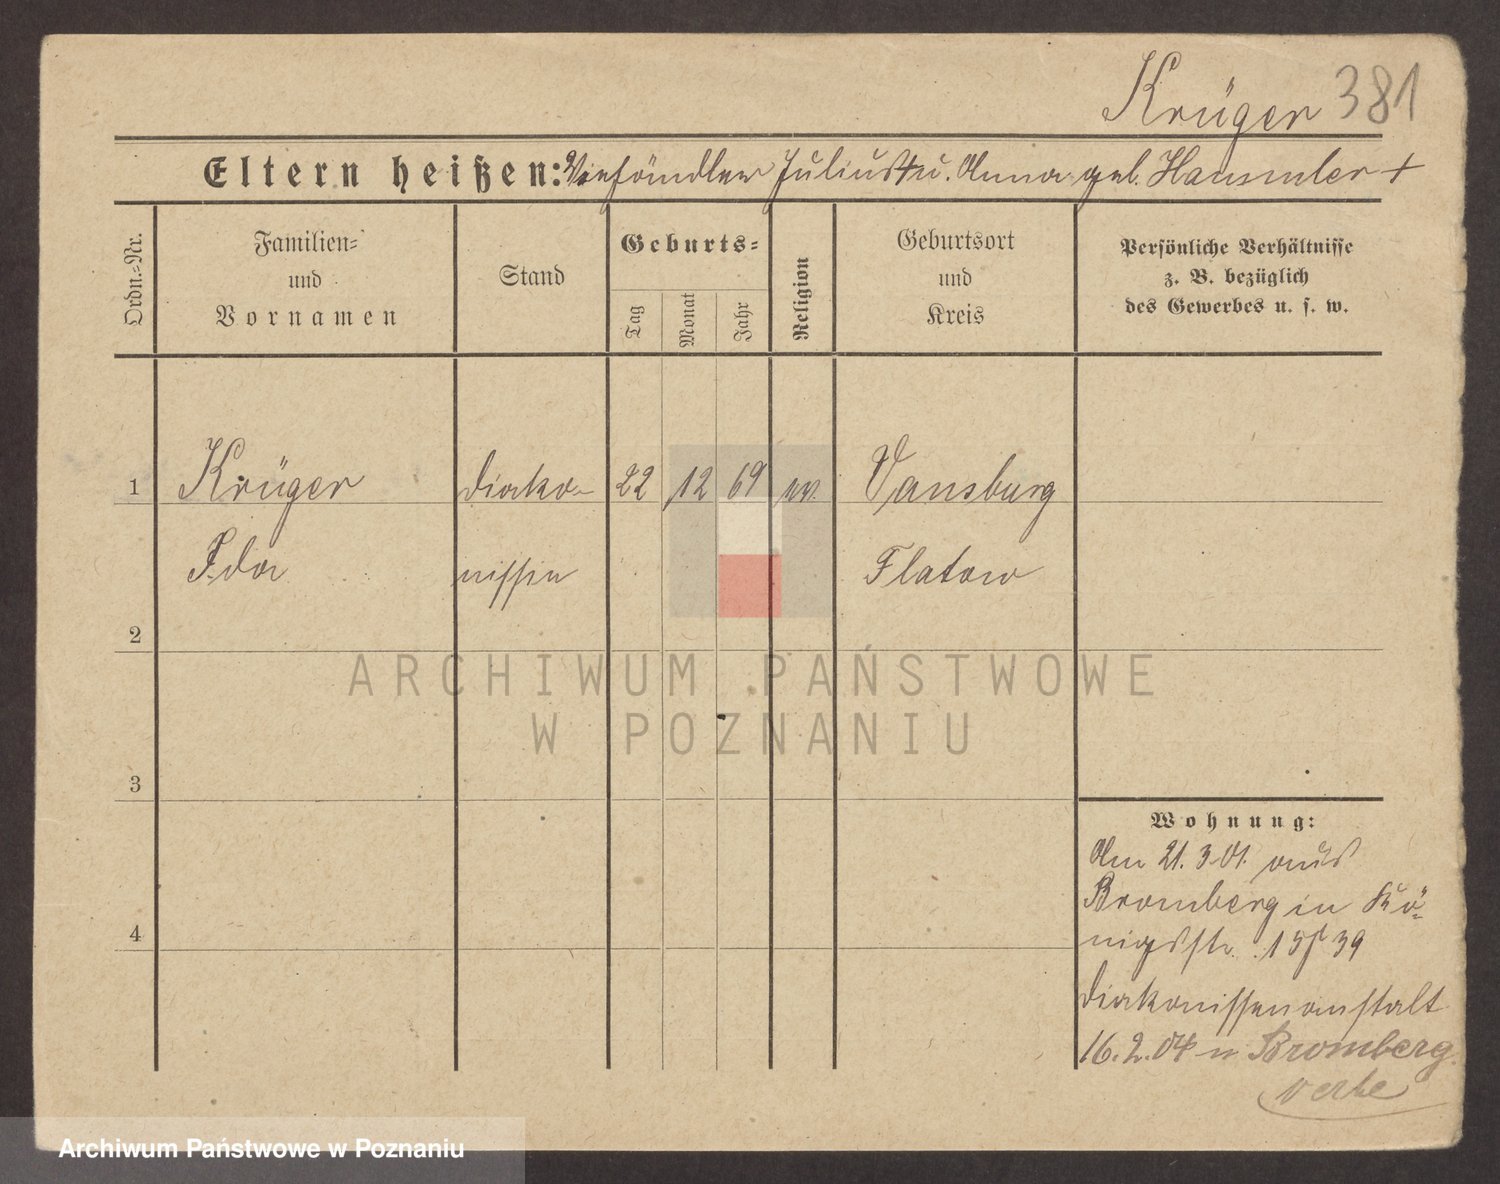 Krüger 381
Eltern heißen: Viehändler Julius † u. Anna geb. Hammler +
Ordn.-Nr.
Familien-
und
Vornamen
Stand
Geburts-
Tag
Monat
Jahr
Religion
Geburtsort
und
Kreis
Persönliche Verhältnisse
z. B. bezüglich
des Gewerbes u. s. w.
1 Krüger Diako- 22 12 69 ev. Vansburg
Ida nissin Flatow
2
3
4
Wohnung:
Am 21.3.01. aus
Bromberg in Kö-
nigsstr. 39
Diakonissenanstalt
16.2.04 n Bromberg
ARCHIWUM PAŃSTWOWE
W POZNANIU
Archiwum Państwowe w Poznaniu